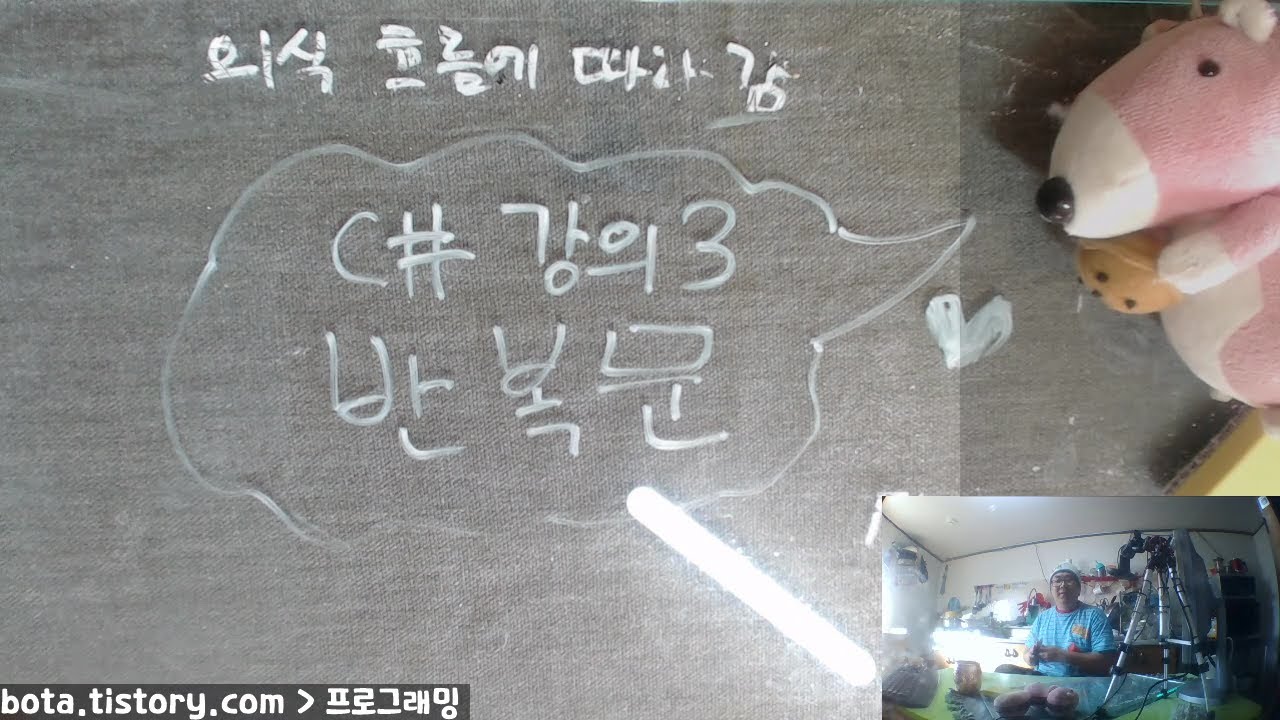 의식 흐름에 따라 감
C# 강의 3
반복문
bota.tistory.com > 프로그래밍